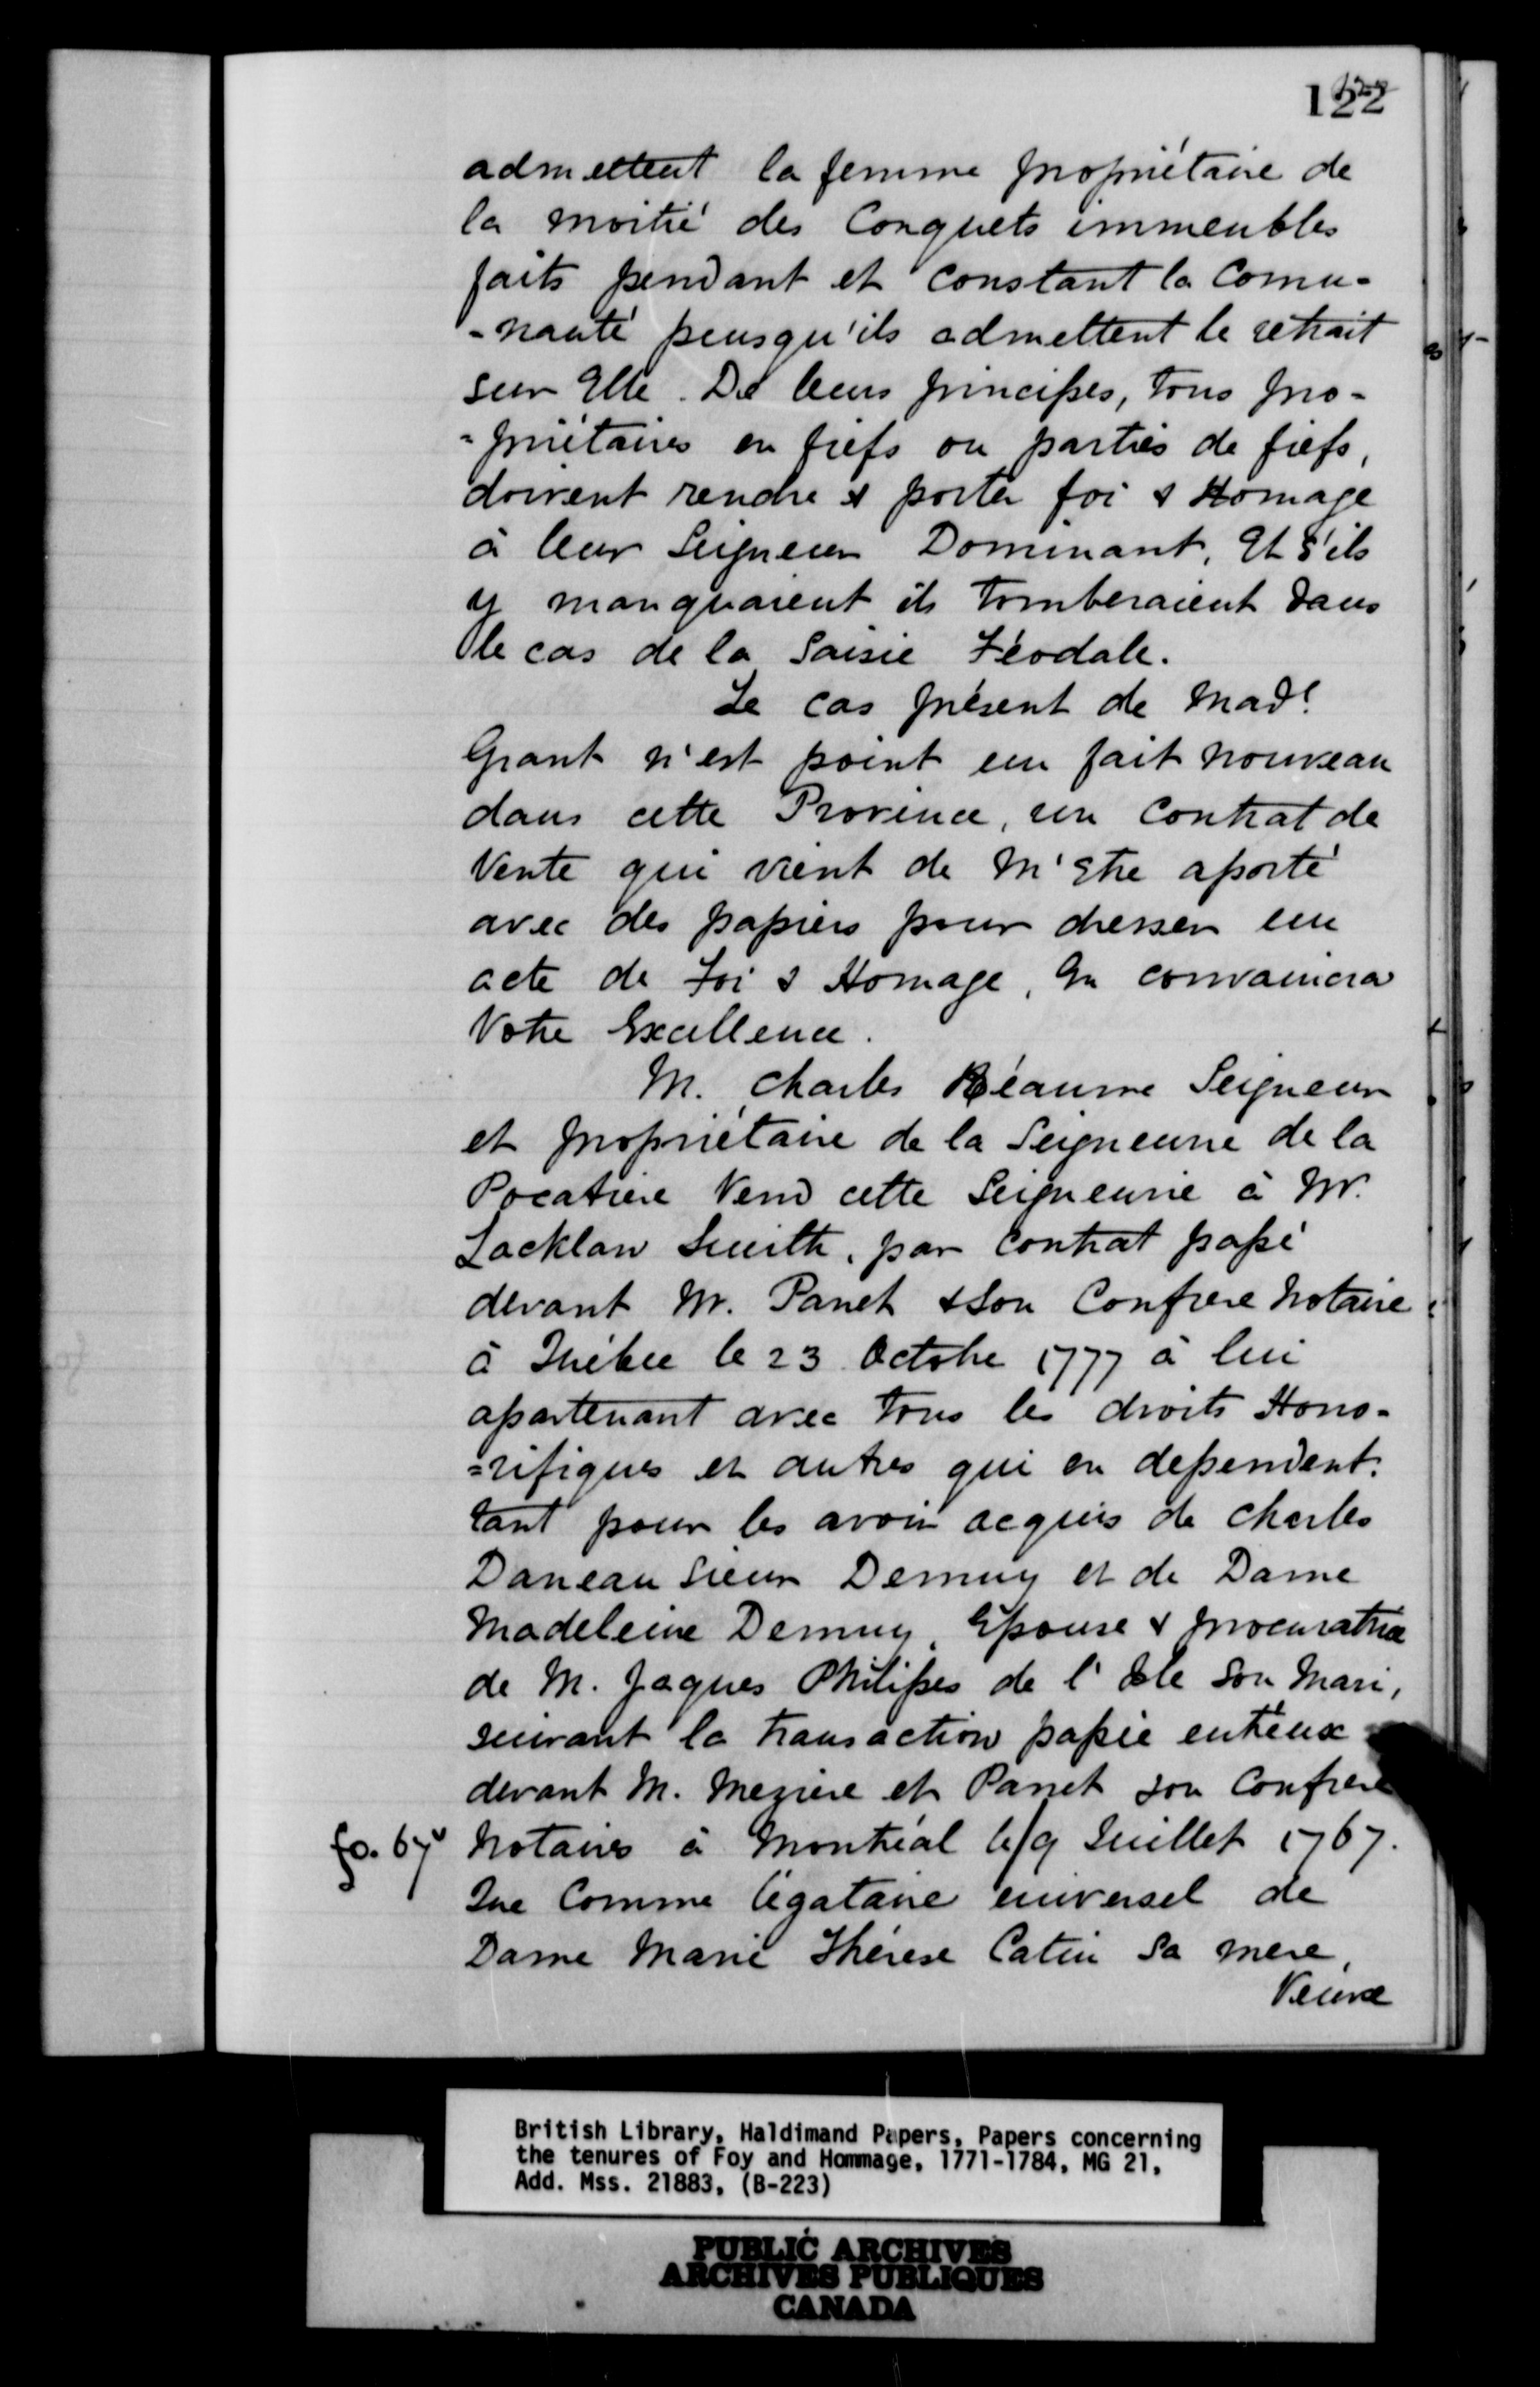 122
admettent la femme propriétaire de
la moitié des Conquets immeubles
faits pendant et constant la Comu-
-nauté puisqu'ils admettent le retrait
sur Elle. De leurs principes, tous pro-
=priétaires en fiefs ou parties de fiefs,
doivent rendre & porter foi & Homage
à leur Seigneur Dominant, Et s'ils
y manquaient ils tomberaient dans
le cas de la Saisie Féodale.
Le cas présent de Mad.e
Grant n'est point un fait nouveau
dans cette Province, un Contrat de
Vente qui vient de M'Etre aporté
avec des papiers pour dresser un
acte de Foi & Homage, En convaincra
Votre Excellence.
M. Charles Réaume Seigneur
et propriétaire de la Seigneurie de la
Pocatiere Vend cette Seigneurie à Mr.
Lacklan Smith, par Contrat passé
devant Mr. Panet & Son Confrere Notaire
à Québec le 23 Octobre 1777 à lui
apartenant avec tous les droits Hono-
=rifiques et autres qui en dependent.
tant pour les avoir acquis de Charles
Daneau Sieur Demuy et de Dame
Madeleine Demuy, Epouse & procuratrice
de M. Jaques Philipes de l'Isle son Mari,
suivant la transaction passée entr'eux
devant M. Meziere et Panet son Confrere
fo. 67v Notaires à Montréal le 9 Juillet 1767.
Que Comme légataire universel de
Dame Marie Thérese Catin Sa mere,
Veuve
British Library, Haldimand Papers, Papers concerning
the tenures of Foy and Hommage, 1771-1784, MG 21,
Add. Mss. 21883, (B-223)
PUBLIC ARCHIVES
ARCHIVES PUBLIQUES
CANADA